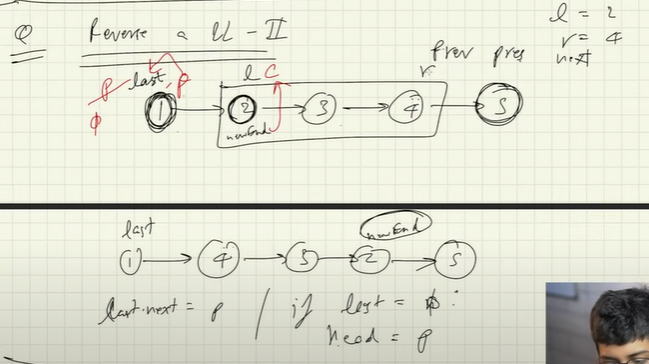 Q Reverse a LL - II
l = 2
r = 4
prev pres next
l C r
p last, p
ϕ
1 2 3 4 5
newEnd
last newEnd
1 4 3 2 5
last.next = p / if last = ϕ :
head = p